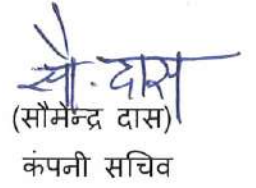 सौ. दास
(सौमेन्द्र दास)
कंपनी सचिव